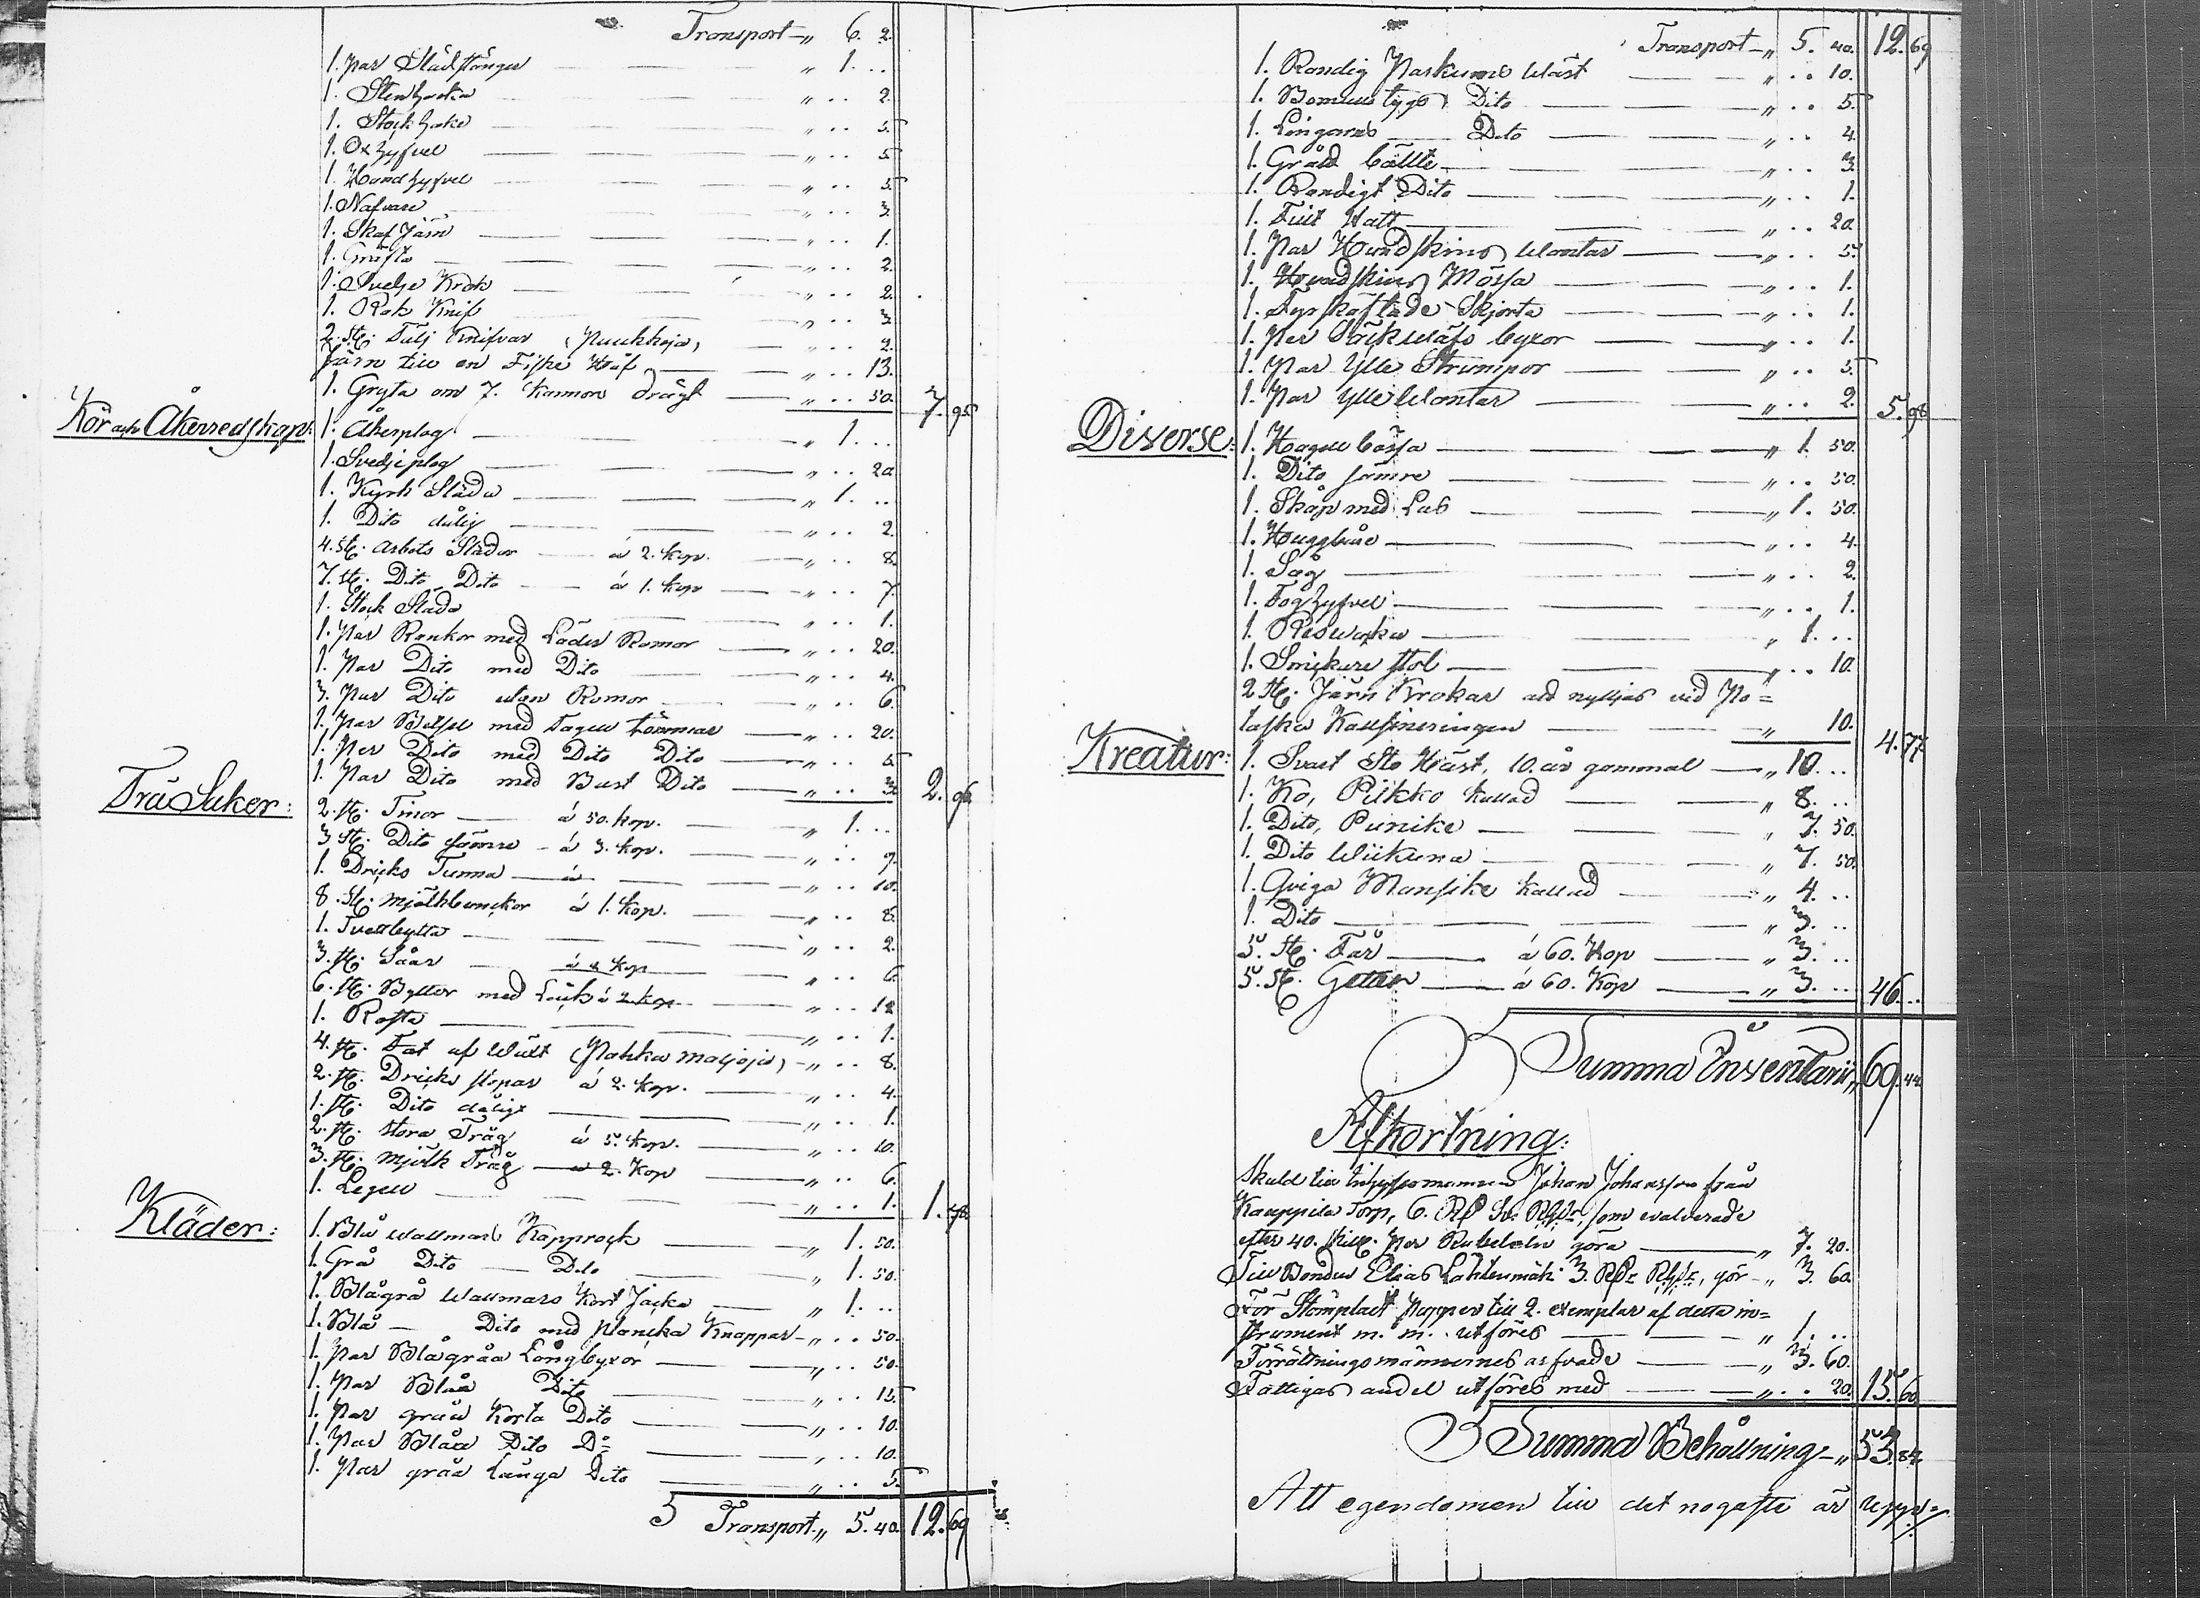 Transport „ 6. 2.
1. par Slädstänger „ 1. ..
1. Stenhacka „ .. 2.
1. Stockhake „ .. 5.
1. Oxhyfvel „ .. 5
1. Handhyfvel „ .. 5.
1. Nafvare „ .. 3.
1. Skaf Järn „ .. 1.
1. Gräfta „ .. 2.
1. Svedje Krok „ .. 2.
1. Rak Knif „ .. 3
2. st. Tälj Knifvar (Puukkoja) „ .. 2.
Järn till en Fiske Håf „ .. 13.
1. Gryta om 7. Kannors drägt „ .. 50. 7. 95
Kör och Åkerredskap:
1. Åkerplog „ 1. ..
1. Svedjeplog „ .. 20
1. Kyrk Släda „ 1. ..
1. Dito dålig „ .. 2.
4. st. Arbets Slädor á 2. kop. „ .. 8.
7. st. Dito Dito á 1. kop „ .. 7.
1. Stock Släda „ .. 1.
1. Par Rankor med Läder Remor „ .. 20.
1. Par Dito med Dito „ .. 4.
3. Par Dito utan Remor „ .. 6.
1. Par Betsel med Tagell Tömmar „ .. 20.
1. Par Dito med Dito Dito „ .. 5.
1. Par Dito med Bast Dito „ .. 3. 2. 96.
Trä Saker:
2. st. Tinor á 50. kop. „ 1. ..
3 st. Dito sämre á 3. kop. „ .. 9.
1. Dricks Tunna á „ .. 10.
8. st. Mjölkbunckar á 1. kop. „ .. 8.
1. Tvettbytta „ .. 2.
3. st. Såar á 2 kop „ .. 6.
6. st. Byttor med Lock á 2 kop „ .. 12
1. Rosta „ .. 1.
4. st. Fat af Wält (Pahka maljoja) „ .. 8.
2. st. Dricks stopar á 2. kop. „ .. 4.
1. st. Dito dåligt „ .. 1.
2. st. stora Tråg á 5. kop. „ .. 10.
3. st. mjölk Tråg á 2. kop „ .. 6.
1. Legell „ .. 1. 1. 78.
Kläder:
1. Blå Wallmars Kapprock „ 1. 50.
1. Grå Dito Dito „ 1. 50.
1. Blågrå Wallmars Kort Jacka „ 1. ..
1. Blå Dito med plancka Knappar „ .. 50.
1. Par Blågråa Långbyxor „ .. 50.
1. Par Blåa Dito „ .. 15
1. Par gråa korta Dito „ .. 10.
1. Par Blåa Dito Do „ .. 10.
1. Par gråa Långa Dito „ .. 5
Transport „ 5. 40. 12. 69
Transport „ 5. 40. 12. 69
1. Randig Parkums Wäst „ .. 10.
1. Bomulls tygs Dito „ .. 5.
1. Lingarns Dito „ .. 4.
1. Grått bälte „ .. 3.
1. Randigt Dito „ .. 1.
1. Filt Hatt „ .. 20.
1. Par Hundskins Wantar „ .. 5.
1. Hundskins Mössa „ .. 1.
1. Fyrskäftade Skjorta „ .. 1.
1. Par Säckwäfs byxor „ .. 1.
1. Par Ylle Strumpor „ .. 5.
1. Par Ylle Wantar „ .. 2. 5. 98
Diverse:
1. Hagell bössa „ 1. 50.
1. Dito sämre „ .. 50.
1. Skåp med Lås „ 1. 50.
1. Huggbåse „ .. 4.
1. Såg „ .. 2.
1. Foghyfvel „ .. 1.
1. Reswaka „ 1. ..
1. Snickare stol „ .. 10.
2 st. Järn Krokar att nyttjas vid Po=
taske Kallsineringen „ 10. 4. 77
Kreatur:
1. Svart Sto Häst, 10. år gammal „ 10. ..
1. Ko, Piikko kallad „ 8. ..
1. Dito, Punike „ 7. 50.
1. Dito Wiikuna „ 7. 50.
1. Qviga Mansike kallad „ 4. ..
1. Dito „ 3. ..
5. st. Får á 60. Kop „ 3. ..
5. st. Getter á 60. Kop „ 3. .. 46. ..
Summa Inventarii „ 69. 44
Afkortning:
Skuld till Inhysesmannen Johan Johansson från
Kauppila Torp, 6. Rd Sv: Rgds, som evalverade
efter 40. skill. per Rubel Silv göra „ 7. 20.
Till Bonden Elias Lähteenmäki 3. Rd Rgds, gör „ 3. 60.
För Stämpladt papper till 2. exemplar af detta in=
strument m. m. utföres „ 1. ..
Förrättningsmännernes arfvode „ 3. 60.
Fattigas andel utföres med „ .. 20. 15. 60
Summa Behållning „ 53. 84
Att egendomen till det nogaste är upp=